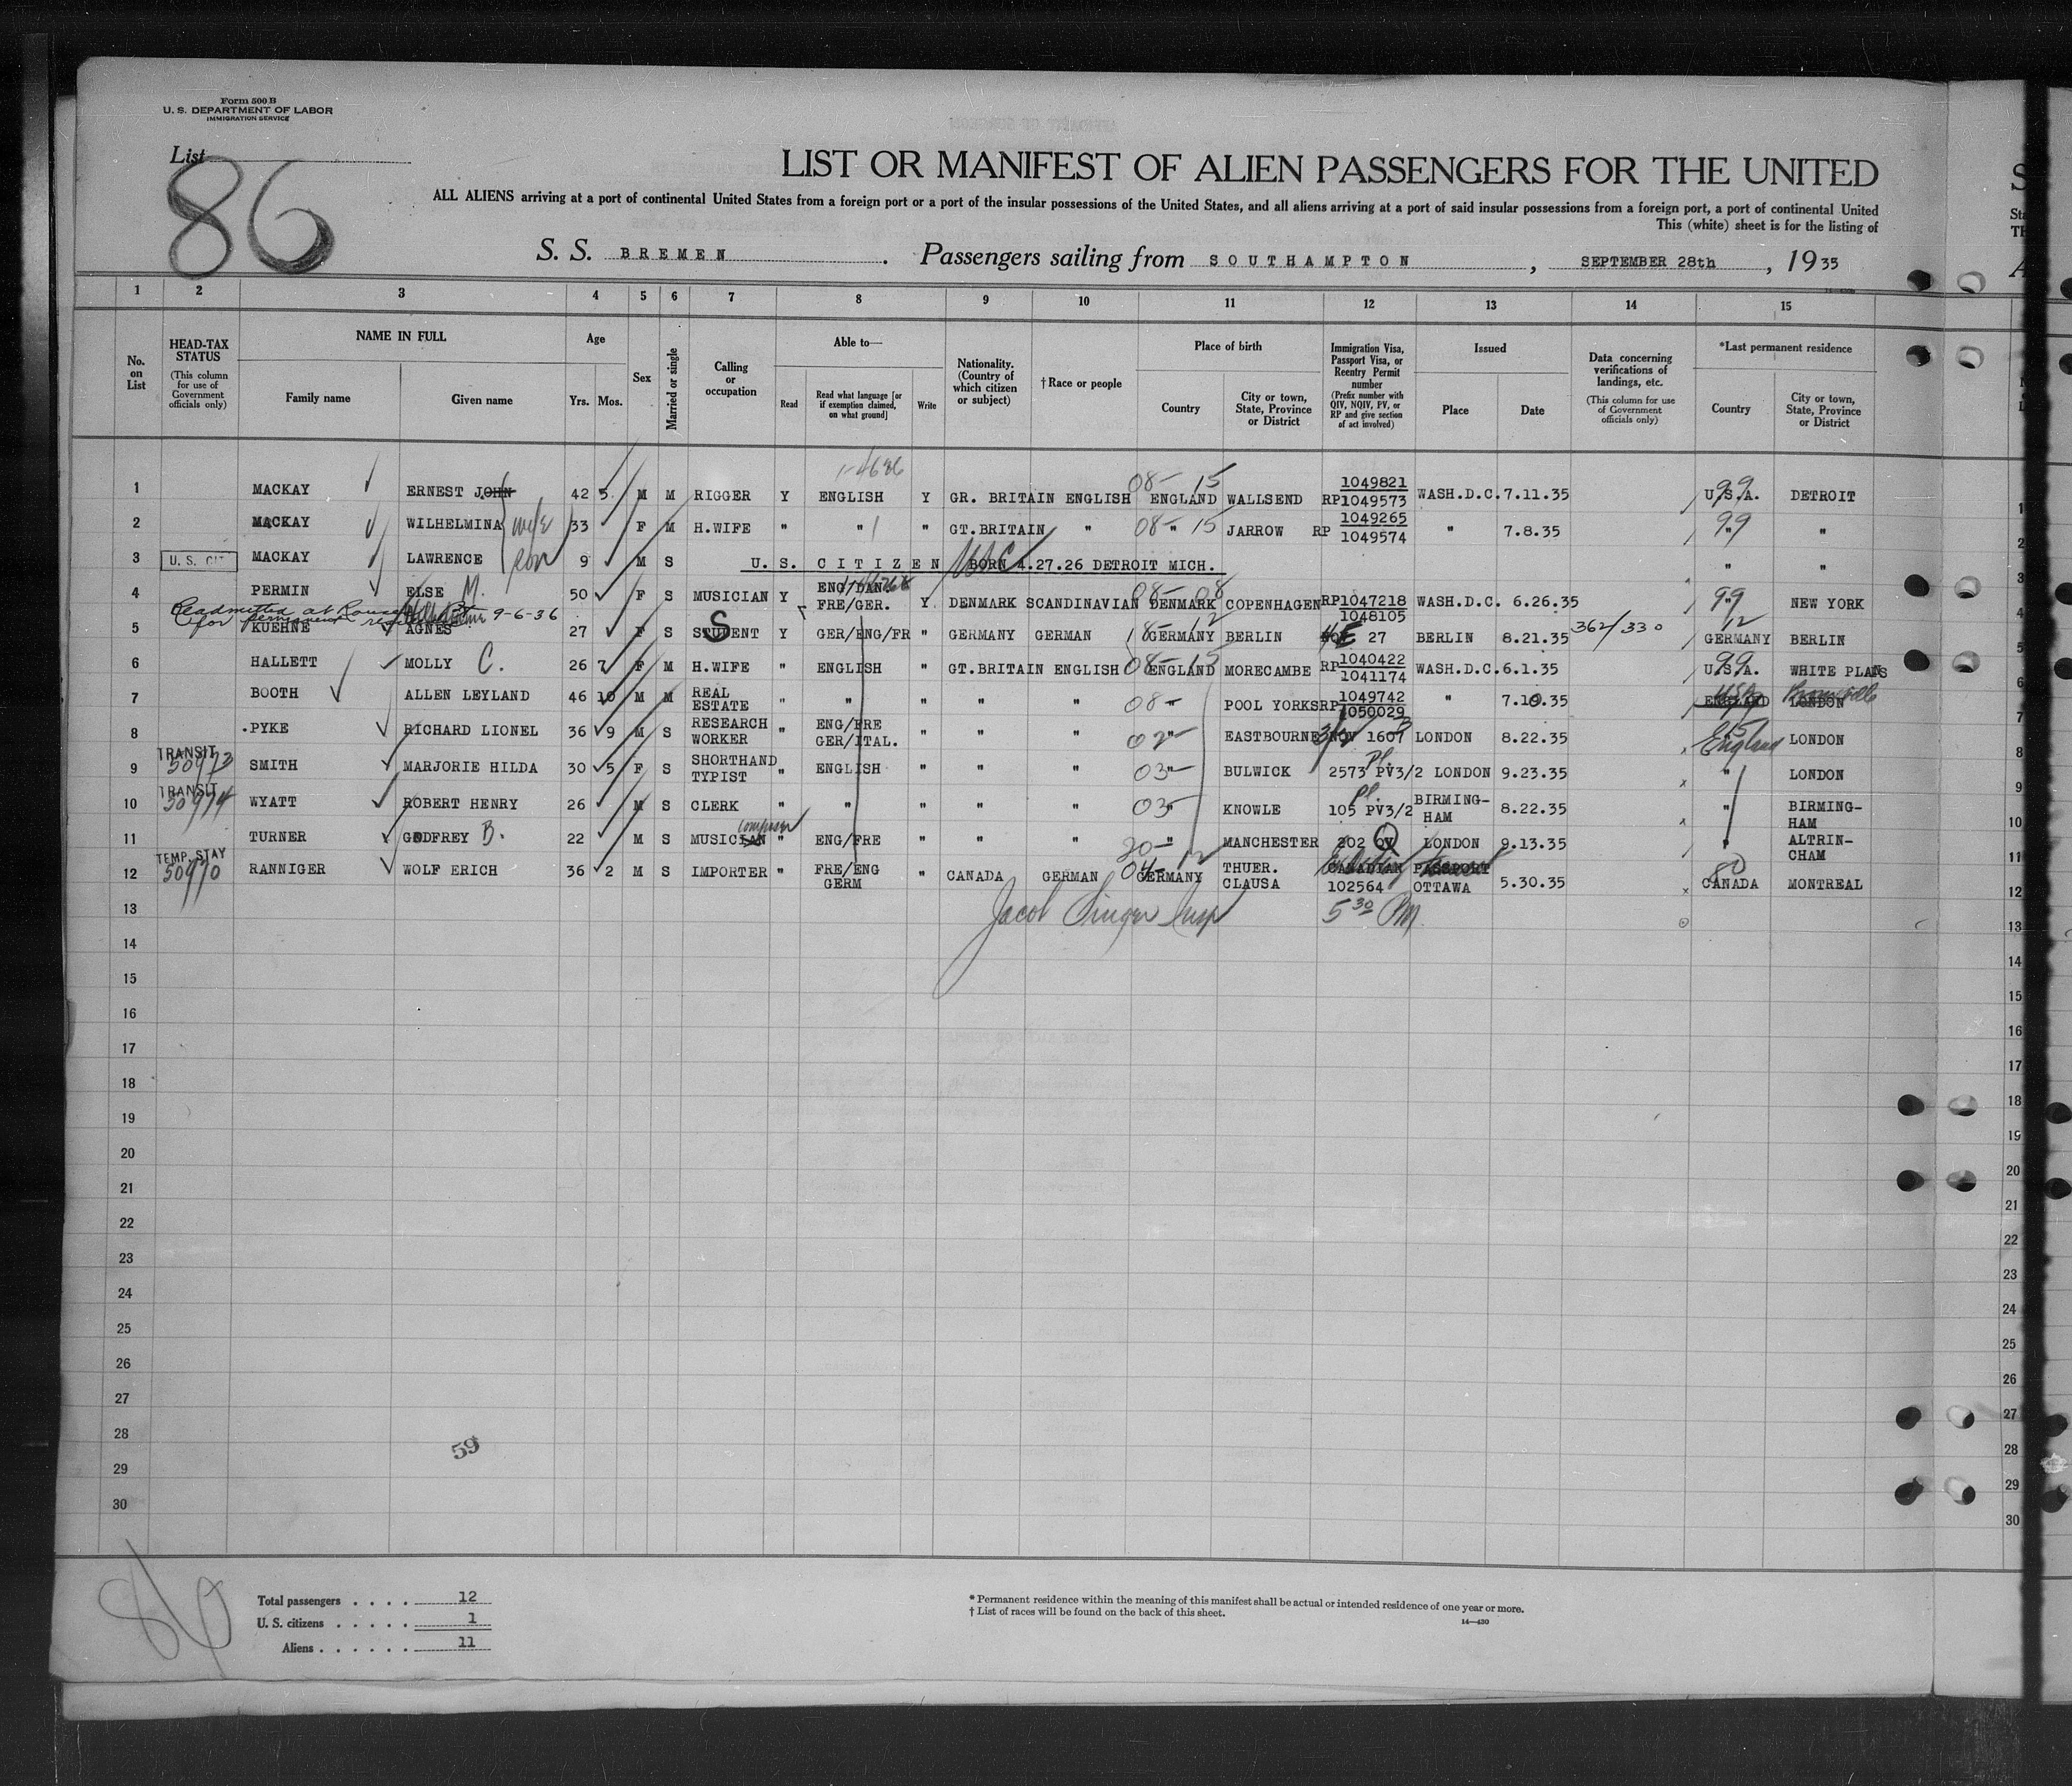 Form 500 B
U. S. DEPARTMENT OF LABOR
IMMIGRATION SERVICE
List
86
LIST OR MANIFEST OF ALIEN PASSENGERS FOR THE UNITED
ALL ALIENS arriving at a port of continental United States from a foreign port or a port of the insular possessions of the United States, and all aliens arriving at a port of said insular possessions from a foreign port, a port of continental United
This (white) sheet is for the listing of
S. S. BREMEN . Passengers sailing from SOUTHAMPTON , SEPTEMBER 28th , 1935
1 2 3 4 5 6 7 8 9 10 11 12 13 14 15
No. on List
HEAD-TAX STATUS (This column for use of Government officials only)
NAME IN FULL
Family name Given name
Age
Yrs. Mos.
Sex
Married or single
Calling or occupation
Able to—
Read
Read what language [or if exemption claimed, on what ground]
Write
Nationality. (Country of which citizen or subject)
† Race or people
Place of birth
Country
City or town, State, Province or District
Immigration Visa, Passport Visa, or Reentry Permit number (Prefix number with QIV, NQIV, PV, or RP and give section of act involved)
Issued
Place Date
Data concerning verifications of landings, etc. (This column for use of Government officials only)
*Last permanent residence
Country
City or town, State, Province or District
1-4686
1 MACKAY ERNEST JOHN 42 5 M M RIGGER Y ENGLISH Y GR. BRITAIN ENGLISH 08- 15 ENGLAND WALLSEND 1049821 RP1049573 WASH.D.C. 7.11.35 99 U.S.A. DETROIT
2 MACKAY WILHELMINA wife 33 F M H.WIFE " " " GT.BRITAIN " 08- " 15 JARROW RP 1049265 1049574 " 7.8.35 99 " "
3 U. S. CIT MACKAY LAWRENCE son 9 M S U. S. CITIZEN USC BORN 4.27.26 DETROIT MICH. " "
4 PERMIN ELSE M. 50 F S MUSICIAN Y ENG/DAN. FRE/GER. Y DENMARK SCANDINAVIAN 08- 08 DENMARK COPENHAGEN RP1047218 1048105 WASH.D.C. 6.26.35 99 " NEW YORK
Readmitted at Rouses Pt. 9-6-36
for permanent residence
5 KUEHNE AGNES 27 F S STUDENT S Y GER/ENG/FR " GERMANY GERMAN 12 GERMANY BERLIN 4E 27 BERLIN 8.21.35 362/330 12 GERMANY BERLIN
6 HALLETT MOLLY C. 26 7 F M H.WIFE " ENGLISH " GT.BRITAIN ENGLISH 08- 15 ENGLAND MORECAMBE RP 1040422 1041174 WASH.D.C. 6.1.35 99 U.S.A. WHITE PLANS
7 BOOTH ALLEN LEYLAND 46 10 M M REAL ESTATE " " " " " 08- " POOL YORKS RP 1049742 1050029 " 7.10.35 ENGLAND USA LONDON
8 .PYKE RICHARD LIONEL 36 9 M S RESEARCH WORKER " ENG/FRE GER/ITAL. " " " 02- " EASTBOURNE 3/2 NOV 1607 LONDON 8.22.35 15 England LONDON
9 TRANSIT 50973 SMITH MARJORIE HILDA 30 5 F S SHORTHAND TYPIST " ENGLISH " " " 03- " BULWICK 2573 PV3/2 LONDON 9.23.35 " LONDON
10 TRANSIT 50974 WYATT ROBERT HENRY 26 M S CLERK " " " " " 03 " KNOWLE 105 PV3/2 BIRMING-HAM 8.22.35 " BIRMING-HAM
11 TURNER GODFREY B. 22 M S MUSICIAN composer " ENG/FRE " " " 20- " MANCHESTER 202 QV Q LONDON 9.13.35 " ALTRIN-CHAM
12 TEMP. STAY 50970 RANNIGER WOLF ERICH 36 2 M S IMPORTER " FRE/ENG GERM " CANADA GERMAN 04- 12 GERMANY THUER. CLAUSA CANADIAN PASSPORT 102564 OTTAWA 5.30.35 80 CANADA MONTREAL
13 Jacob Singer Insp 5 30 PM 13
14
15
16
17
18
19
20
21
22
23
24
25
26
27
28
29
30
59
86
Total passengers . . . . 12
U. S. citizens . . . . . 1
Aliens . . . . . . 11
* Permanent residence within the meaning of this manifest shall be actual or intended residence of one year or more.
† List of races will be found on the back of this sheet.
14—430